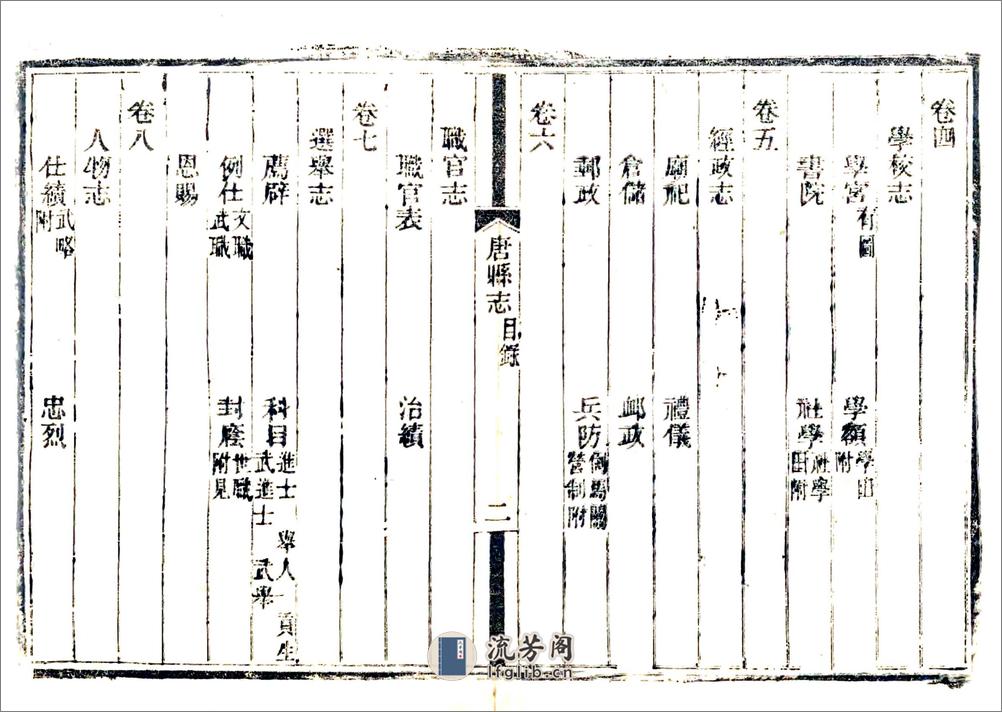 卷四
學校志
學宮有圖　學額學田附
書院　社學社學田附
卷五
經政志
廟祀　禮儀
倉儲　卹政
郵政　兵防倒馬關營制附
卷六
唐縣志　目錄　二
職官志
職官表　治績
卷七
選舉志
薦辟　科目進士　舉人　貢生　武進士　武舉
例仕文職武職　封廕世職附見
恩賜
卷八
人物志
仕績武略附　忠烈
流芳阁
lfglib.cn